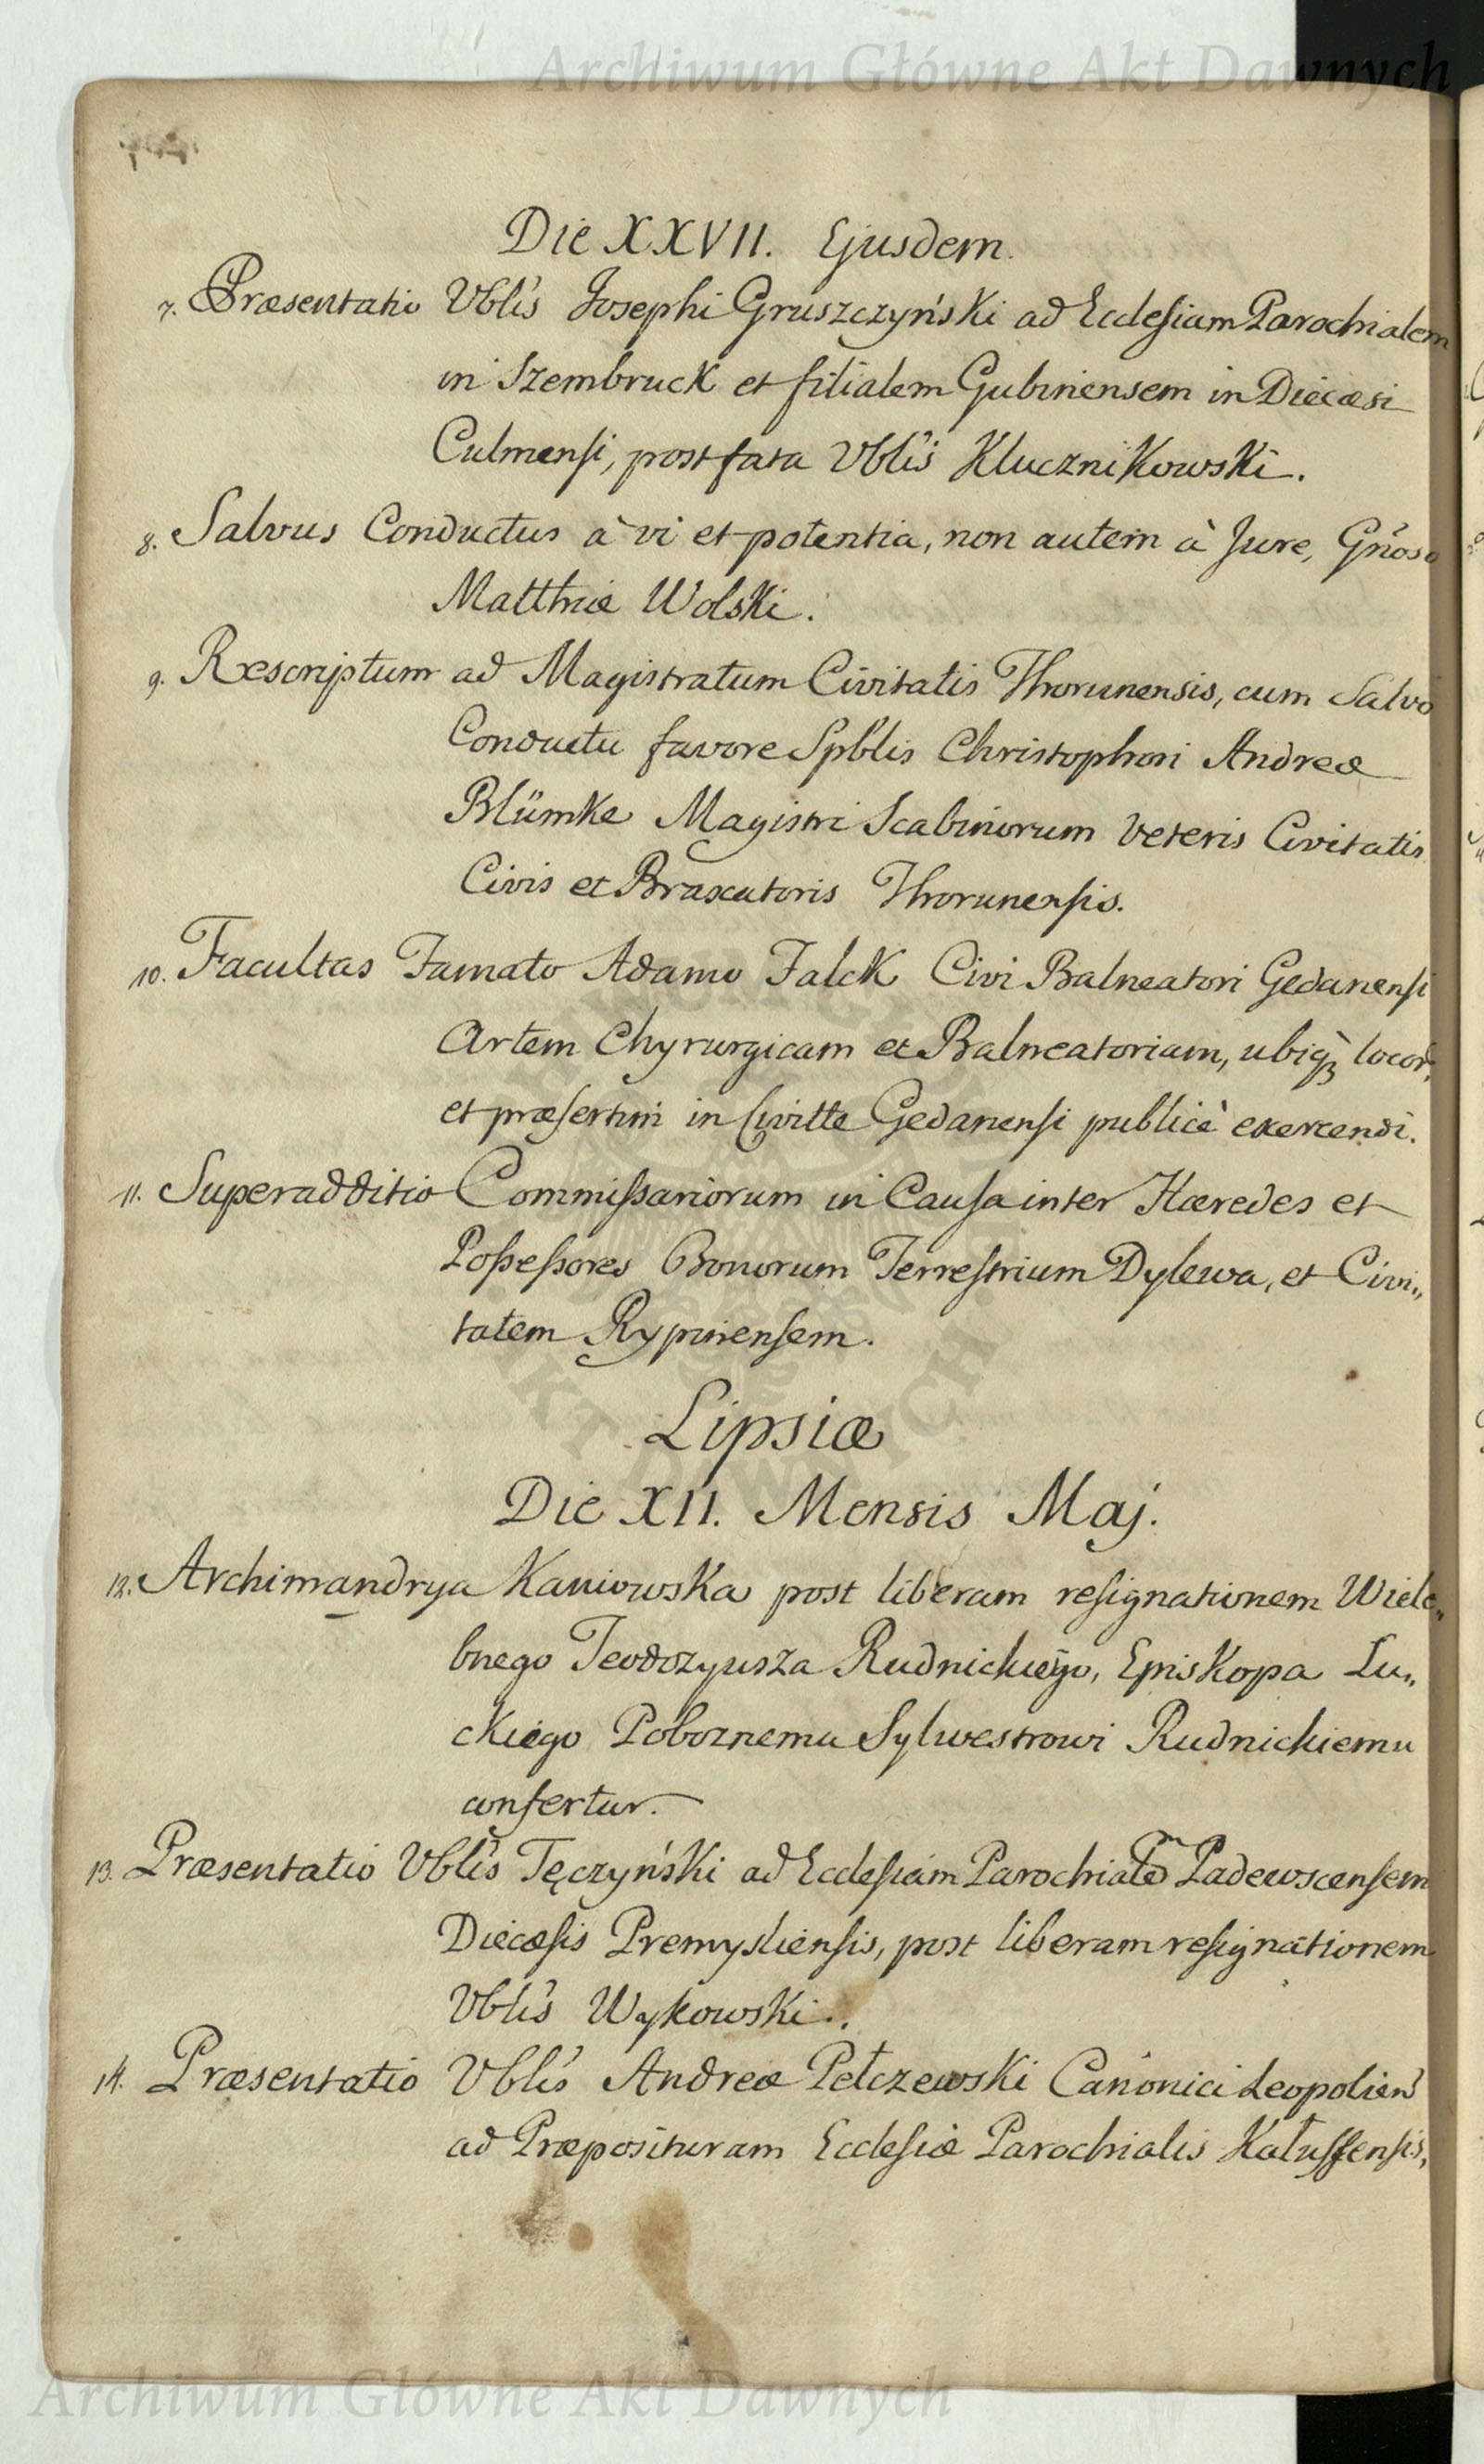 Archiwum Główne Akt Dawnych
Die XXVII. Ejusdem.
7. Præsentatio Vblis Josephi Gruszczyński ad Ecclesiam Parochialem
in Szembruck et filialem Gubinensem in Diecæsi
Culmensi, post fata Vblis Klucznikowski.
8. Salvus Conductus à vi et potentia, non autem à Jure, Gñoso
Matthiæ Wolski.
9. Rescriptum ad Magistratum Civitatis Thorunensis, cum Salvo
Conductu favore Spblis Christophori Andreæ
Blümke Magistri Scabinorum Veteris Civitatis
Civis et Braxatoris Thorunensis.
10. Facultas Famato Adamo Falck Civi Balneatori Gedanensi
Artem Chyrurgicam et Balneatoriam, ubiqz locor,
et præsertim in Civitte Gedanensi publicè exercendi.
11. Superadditio Commissariorum in Causa inter Hæredes et
Possessores Bonorum Terrestrium Dylewa, et Civi„
tatem Rypinensem.
Lipsiæ
Die XII. Mensis Maj.
12. Archimandrya Kaniowska post liberam resignationem Wiele„
bnego Teodozyusza Rudnickiego, Episkopa Lu„
ckiego Poboznemu Sylwestrowi Rudnickiemu
confertur.
13. Præsentatio Vblis Tęczyński ad Ecclesiam Parochialẽ Padewscensem
Diecæsis Premysliensis, post liberam resignationem
Vblis Wykowski.
14. Præsentatio Vblis Andreæ Pełczewski Canonici Leopolien
ad Præposituram Ecclesiæ Parochialis Kałussensis,
Archiwum Główne Akt Dawnych